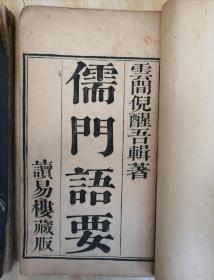 雲間倪醒吾輯著
儒門語要
讀易樓藏版